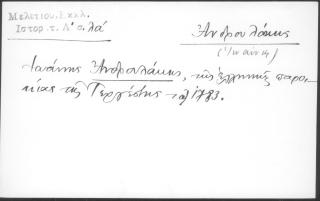 Μελετίου, Εκκλ.
Ιστορ. τ. Α' σ. λά
Ἀνδρουλάκης
(Ἰωάννης)
Ἰωάννης Ἀνδρουλάκης, τῆς ἑλληνικῆς παροι-
κίας τῆς Τεργέστης 1783.